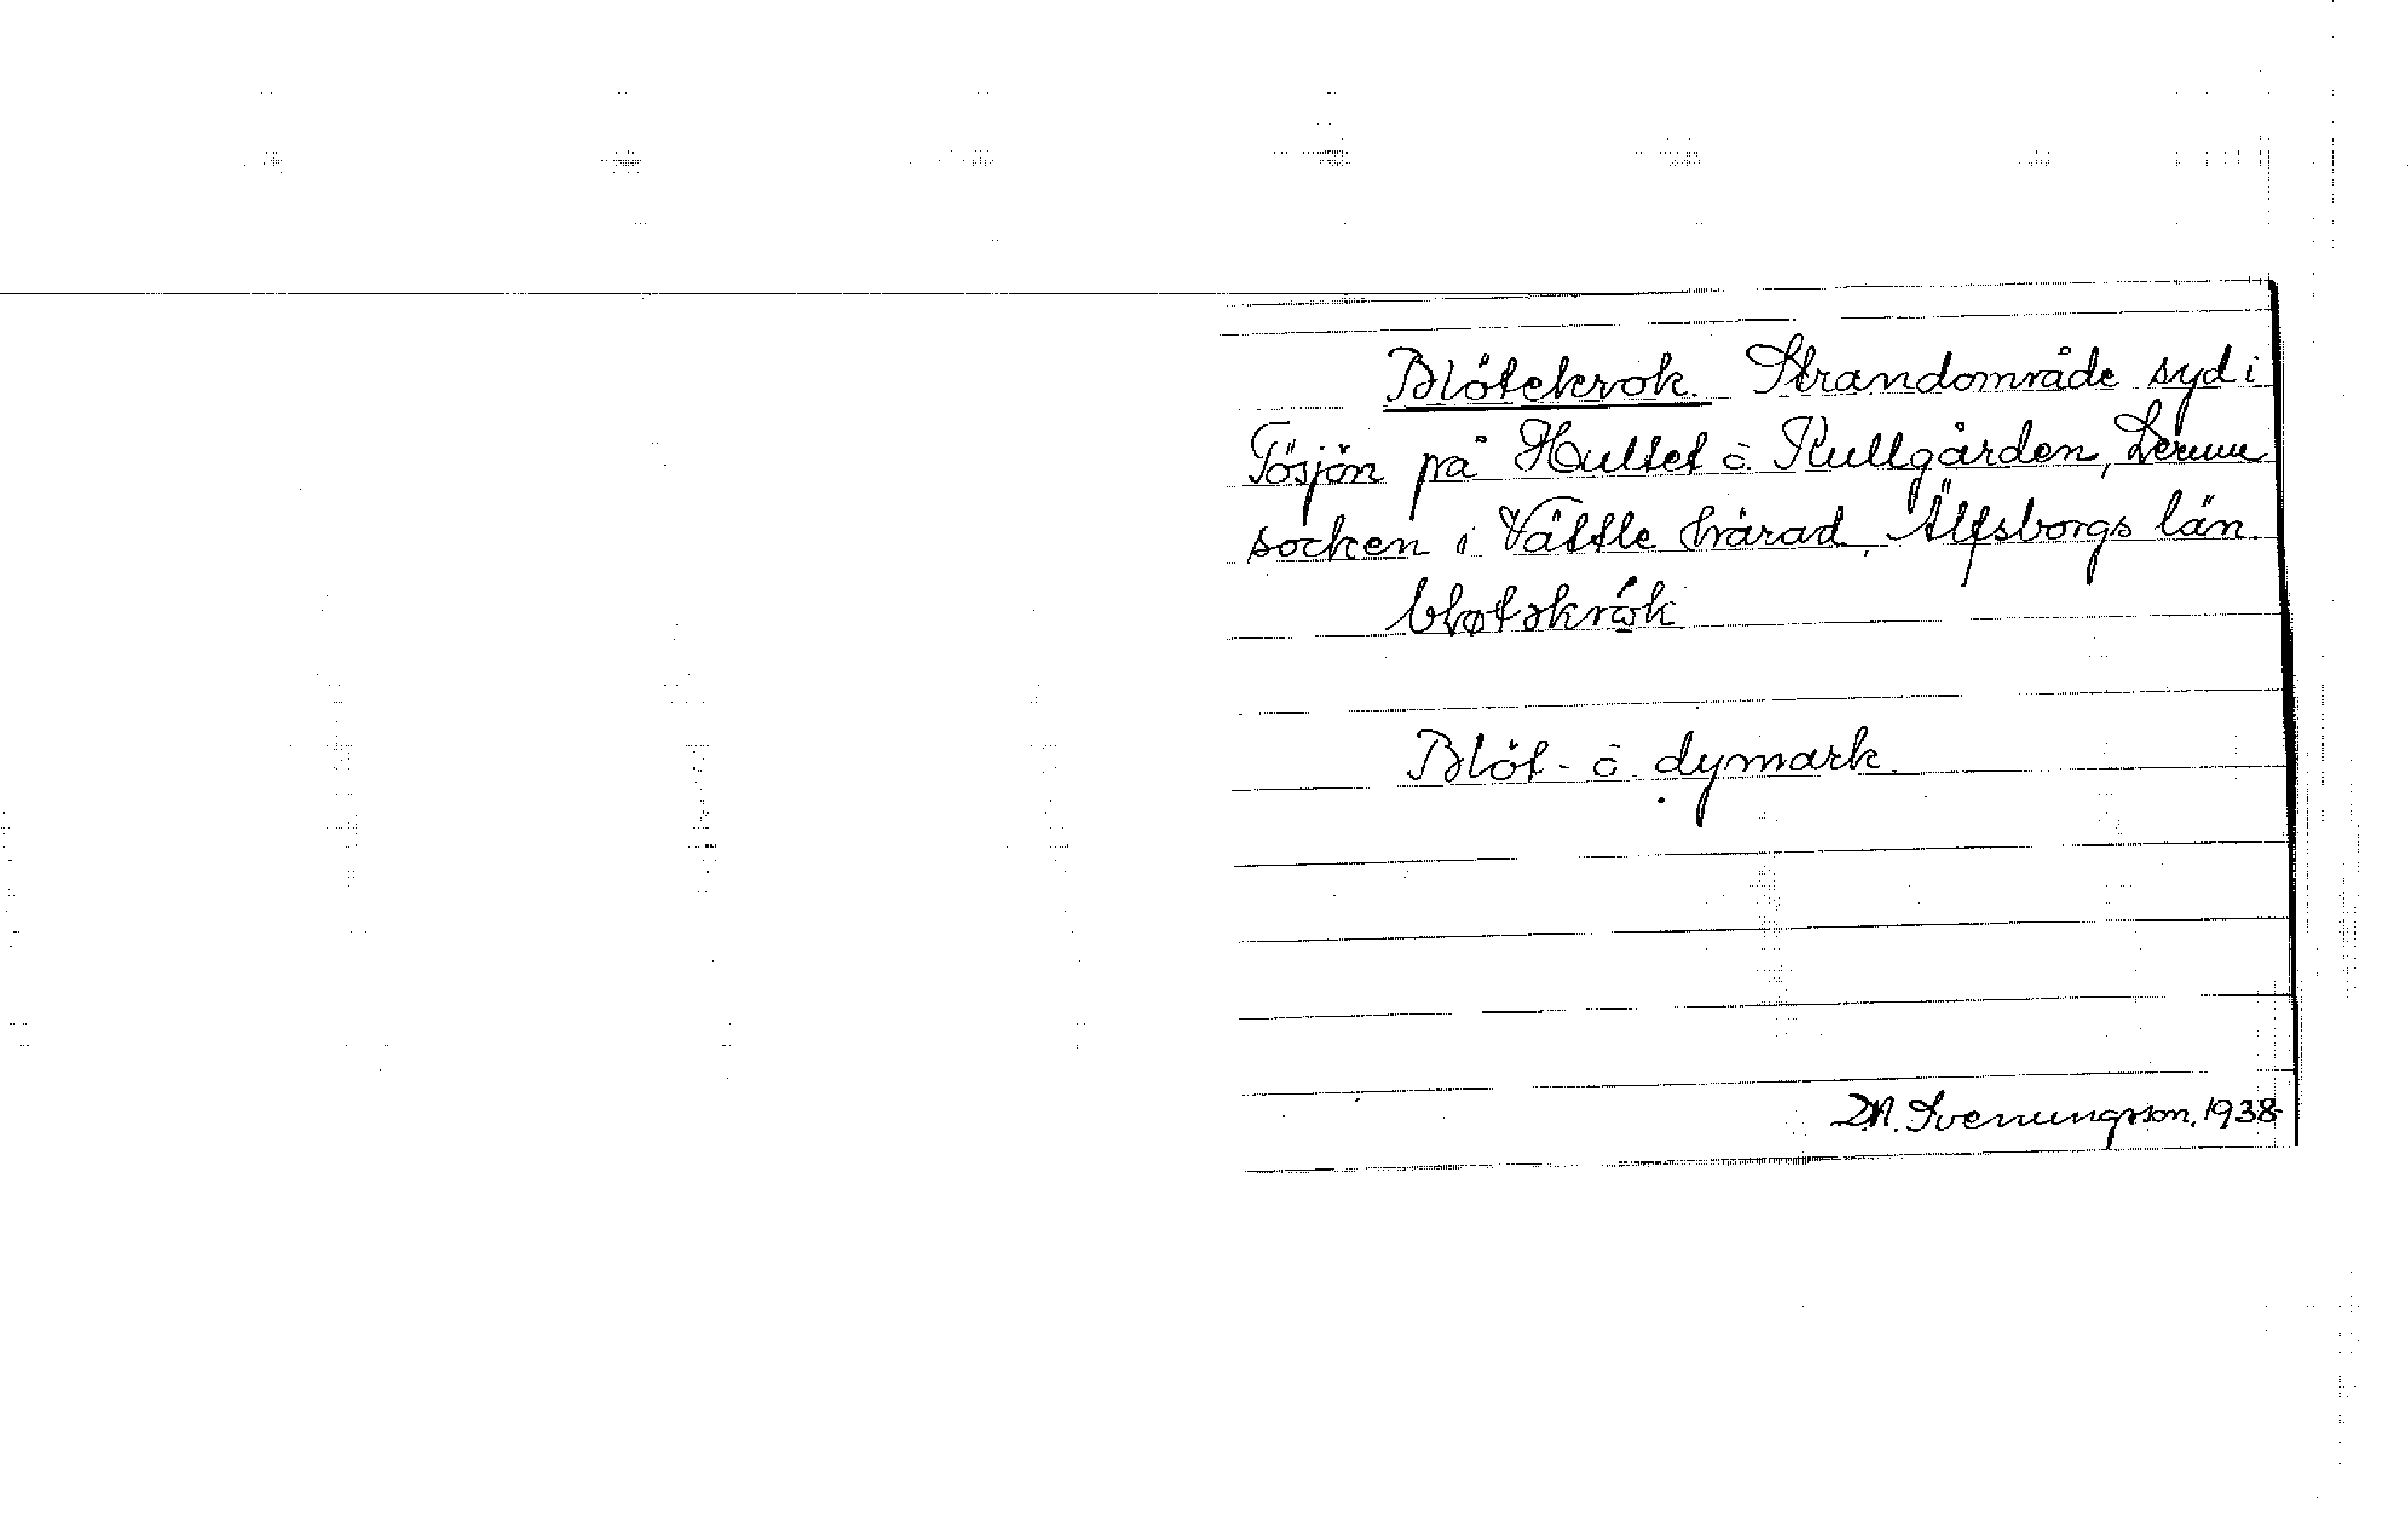 Blötekrok. Strandområde syd i
Tösjön på Hultet o. Kullgården, Lerum
socken i Vättle härad, Älfsborgs län.
bløtəkrók
Blöt- o. dymark.
D.A. Svenungsson, 1938